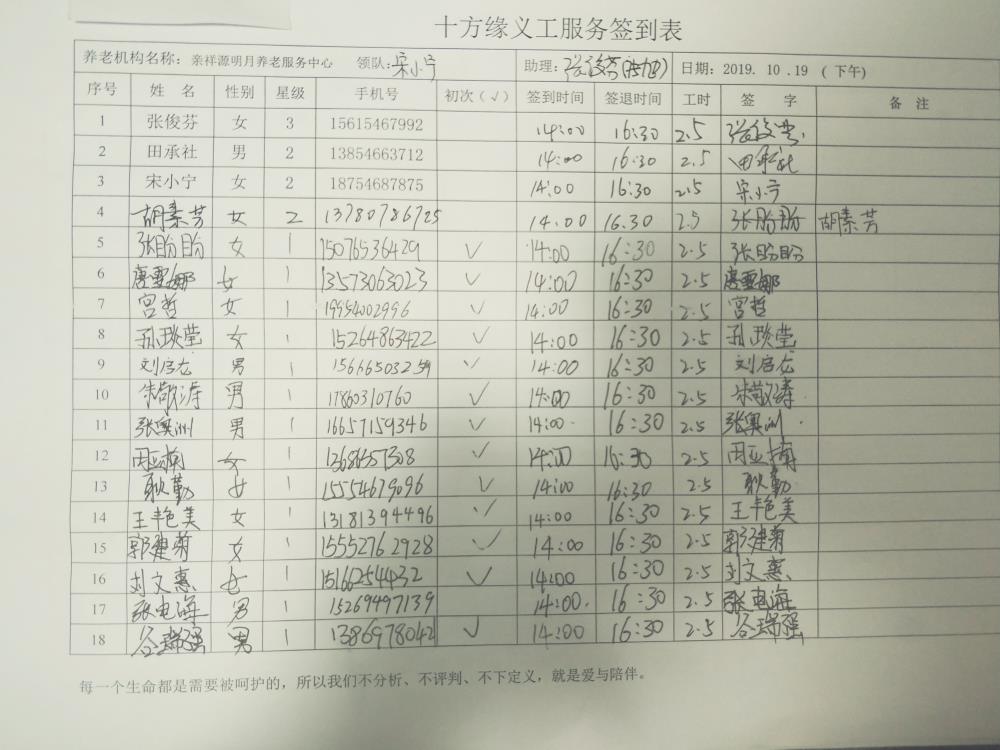 十方缘义工服务签到表
养老机构名称：亲祥源明月养老服务中心 领队：宋小宁 助理：张俊芬 日期：2019. 10 .19 （下午）
序号 姓 名 性别 星级 手机号 初次（√） 签到时间 签退时间 工时 签 字 备 注
1 张俊芬 女 3 15615467992 14:00 16:30 2.5 张俊芬
2 田承社 男 2 13854663712 14:00 16:30 2.5 田承社
3 宋小宁 女 2 18754687875 14:00 16:30 2.5 宋小宁
4 胡素芳 女 2 13780786725 14:00 16.30 2.5 张盼盼 胡素芳
5 张盼盼 女 1 15076536429 √ 14:00 16:30 2.5 张盼盼
6 唐雪娜 女 1 13573063023 √ 14:00 16:30 2.5 唐雪娜
7 宫哲 女 1 19954002996 √ 14:00 16:30 2.5 宫哲
8 孙琰莹 女 1 15264863422 √ 14:00 16:30 2.5 孙琰莹
9 刘启龙 男 1 15666503259 √ 14:00 16:30 2.5 刘启龙
10 朱敬涛 男 1 17860310760 √ 14:00 16:30 2.5 朱敬涛
11 张奥洲 男 1 16657159346 √ 14:00 16:30 2.5 张奥洲
12 周亚楠 女 1 √ 14:00 16:30 2.5 周亚楠
13 耿勤 女 1 15554679096 √ 14:00 16:30 2.5 耿勤
14 王艳美 女 1 13181394496 √ 14:00 16:30 2.5 王艳美
15 郭建菊 女 1 15552762928 √ 14:00 16:30 2.5 郭建菊
16 刘文惠 女 1 15166254432 √ 14:00 16:30 2.5 刘文惠
17 张电海 男 1 15269497139 14:00. 16:30 2.5 张电海
18 谷瑞强 男 1 1386978042 √ 14:00 16:30 2.5 谷瑞强
每一个生命都是需要被呵护的，所以我们不分析、不评判、不下定义，就是爱与陪伴。